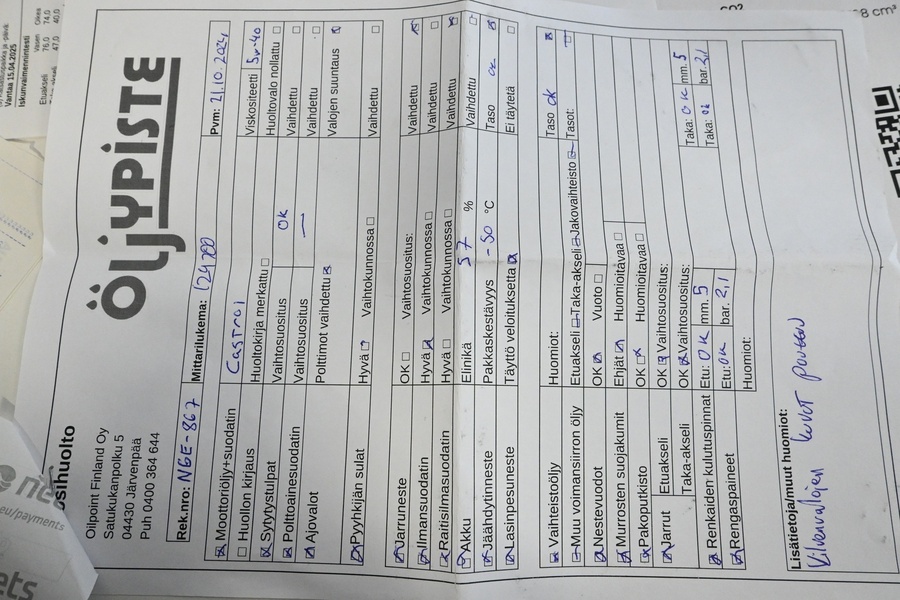 osihuolto
ÖLJYPISTE
Oilpoint Finland Oy
Satukukanpolku 5
04430 Järvenpää
Puh 0400 364 644
Rek.nro: NGE-867 Mittarilukema: Pvm: 21.10.2024
Moottoriöljy+suodatin Castrol Viskositeetti 5w-40
Huollon kirjaus Huoltokirja merkattu Huoltovalo nollattu
Sytytystulpat Vaihtosuositus ok Vaihdettu
Polttoainesuodatin Vaihtosuositus — Vaihdettu
Ajovalot Polttimot vaihdettu Valojen suuntaus
Pyyhkijän sulat Hyvä Vaihtokunnossa Vaihdettu
Jarruneste OK Vaihtosuositus: Vaihdettu
Ilmansuodatin Hyvä Vaihtokunnossa Vaihdettu
Raitisilmasuodatin Hyvä Vaihtokunnossa Vaihdettu
Akku Elinikä 57 % Vaihdettu
Jäähdytinneste Pakkaskestävyys -50 °C Taso ok
Lasinpesuneste Täyttö veloituksetta Ei täytetä
Vaihteistoöljy Huomiot: Taso ok
Muu voimansiirron öljy Etuakseli Taka-akseli Jakovaihteisto Tasot:
Nestevuodot OK Vuoto
Murrosten suojakumit Ehjät Huomioitavaa
Pakoputkisto OK Huomioitavaa
Jarrut Etuakseli OK Vaihtosuositus:
Taka-akseli OK Vaihtosuositus:
Renkaiden kulutuspinnat Etu: OK mm. 5 Taka: OK mm. 5
Rengaspaineet Etu: OK bar. 2,1 Taka: ok bar. 2,1
Huomiot:
Lisätietoja/muut huomiot:
kuvet
Vantaa 15.04.2025
Iskunvaimennintesti
Vasen Oikea
Etuakseli 76,0 74,0
47,0 40,0
eu/payments
ets
8 cm³